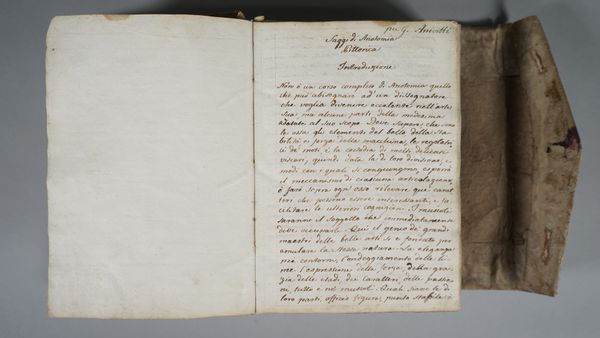 per G.
Saggi di Anatomia
Pittorica
Introduzione
Non è un corso completo di Anatomia quello
che può abisognare ad un dissegnatore
che voglia divenire eccelente nell'arte
sua ma alcune parti della medesima
adatate al suo scopo. Deve sapere che sono
le ossa gli elementi del bello della sta
bilità e forza della macchina, le regolatri
ci de moti e la custodia di molti delicati
visceri, quindi data la di loro divisione, i
modi con i quali si congiungono, esporrò
il meccanismo di ciascuna articolazione
e farò sopra ogni osso rilevare que carat
teri che possono essere interessanti, e fa
cilitare le ulteriori cognizioni. I muscoli
saranno il soggetto che immediatamente
deve occuparlo. Qui il genio de' grandi
maestri delle belle arti si è forzato per
emulare la stessa natura. La eleganza
nei contorni, l'ondeggiamento delle li
nee l'espressione della forza, della gra
zia delle etadi, dei caratteri delle passio
ni, tutto è ne' muscoli. Quali siano le di
loro parti, officio figura, punto stabile è